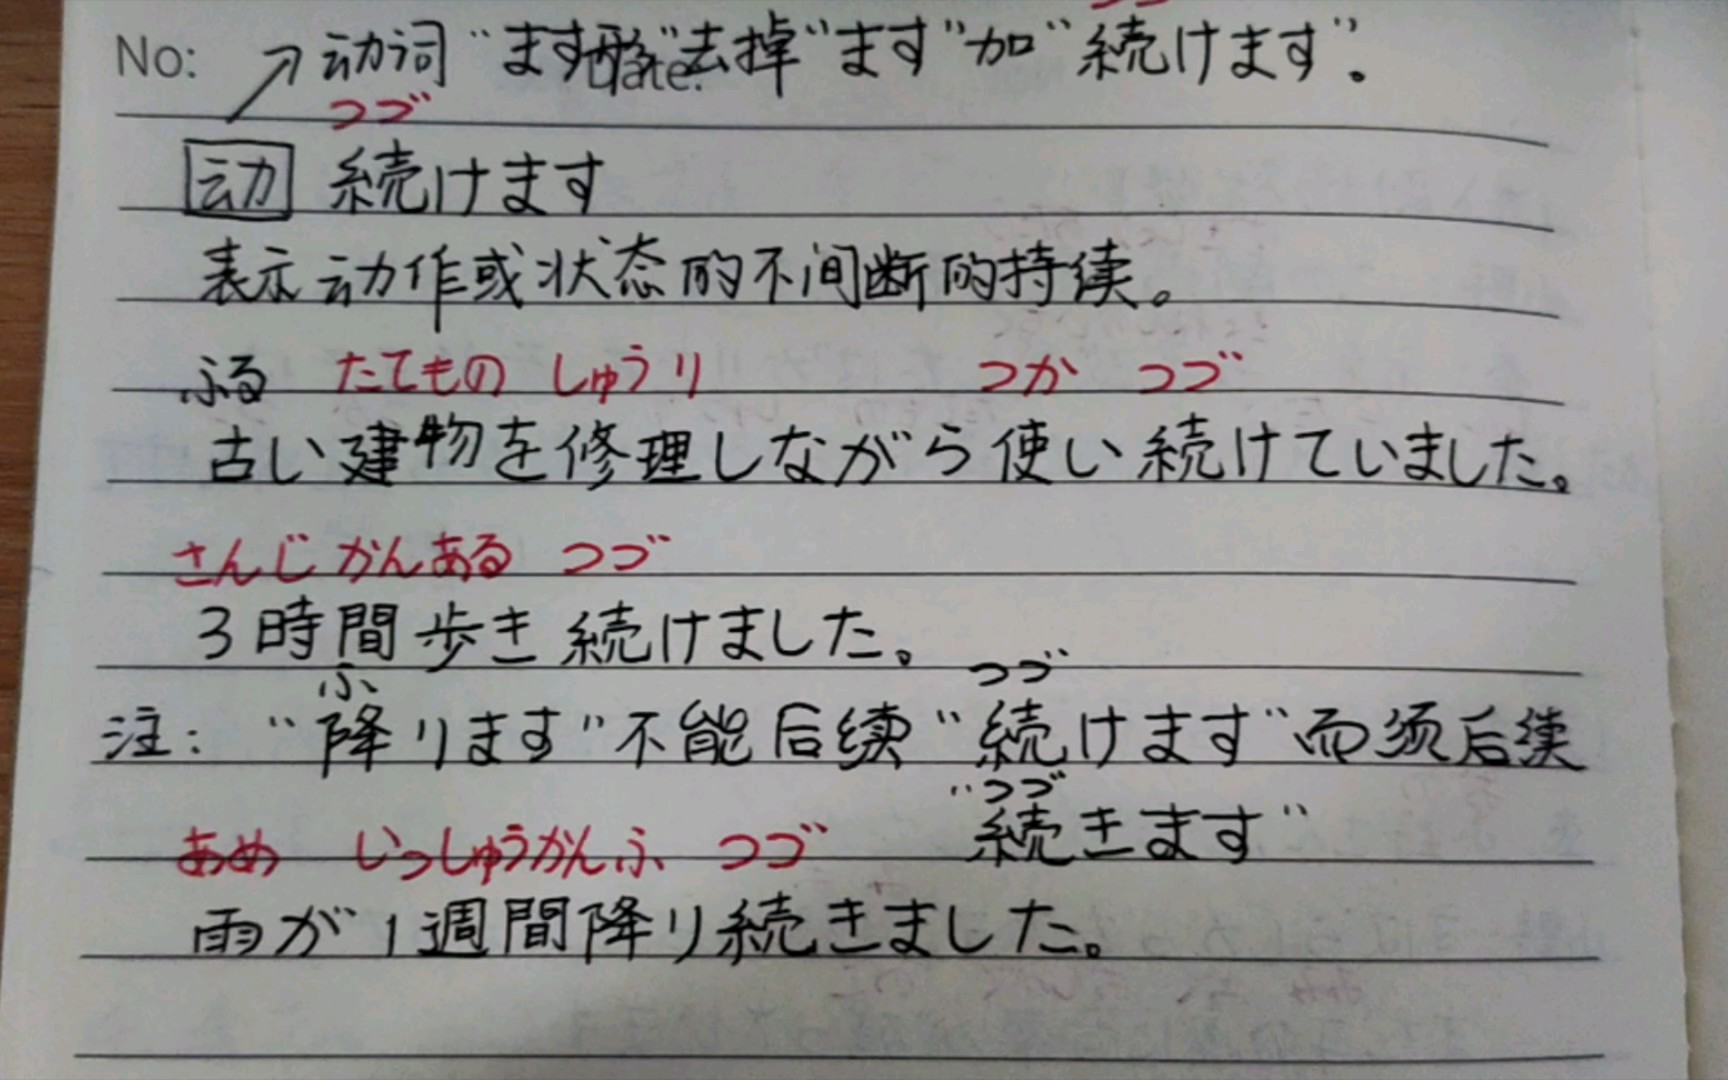 No: 动词“ます形”去掉“ます”加“続けます”。
Date:
つづ
动 続けます
表示动作或状态的不间断的持续。
ふる たてもの しゅうり つか つづ
古い建物を修理しながら使い続けていました。
さんじかんある つづ
3時間歩き続けました。
ふ つづ
注：“降ります”不能后续“続けます”而须后续
つづ
“続きます”
あめ いっしゅうかんふ つづ
雨が1週間降り続きました。